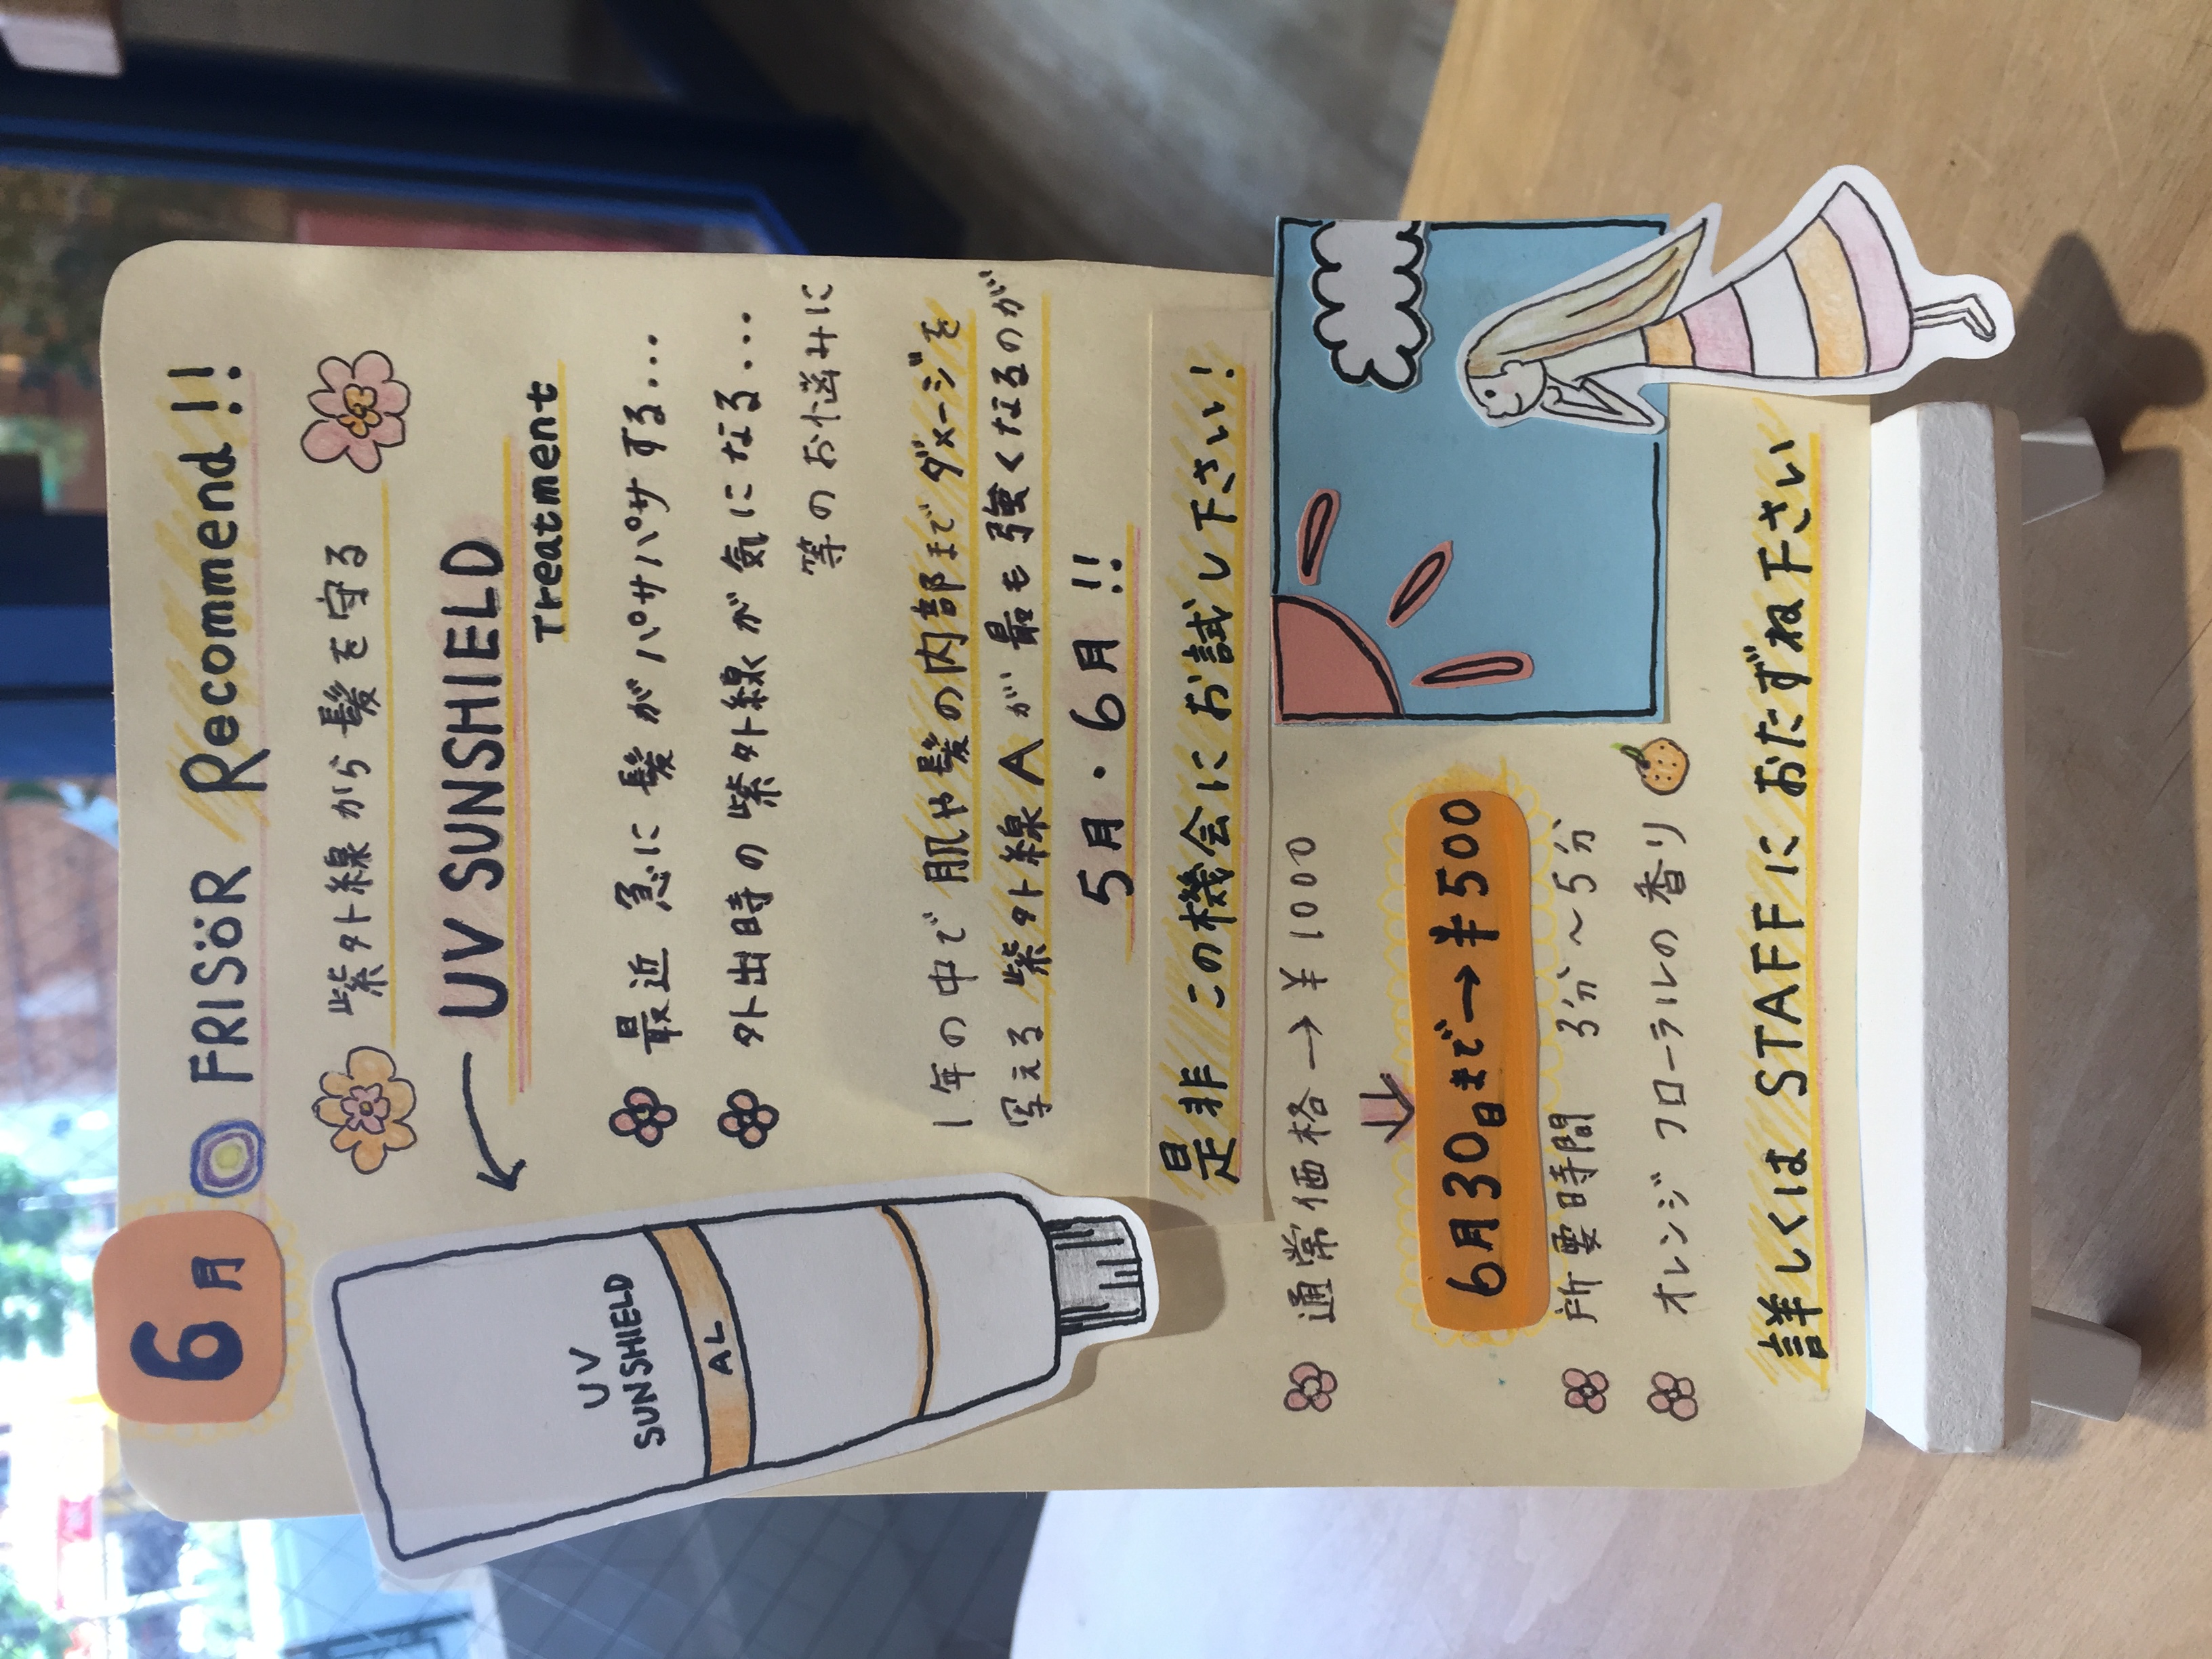 6月
FRISÖR Recommend!!
紫外線から髪を守る
UV SUNSHIELD
Treatment
最近 急に髪がパサパサする...
外出時の紫外線が気になる...
等のお悩みに
1年の中で肌や髪の内部までダメージを
与える紫外線Aが最も強くなるのが
5月・6月!!
是非 この機会にお試し下さい!
UV
SUNSHIELD
AL
通常価格→¥1000
6月30日まで→¥500
所要時間 3分〜5分
オレンジフローラルの香り
詳しくは STAFFにおたずね下さい